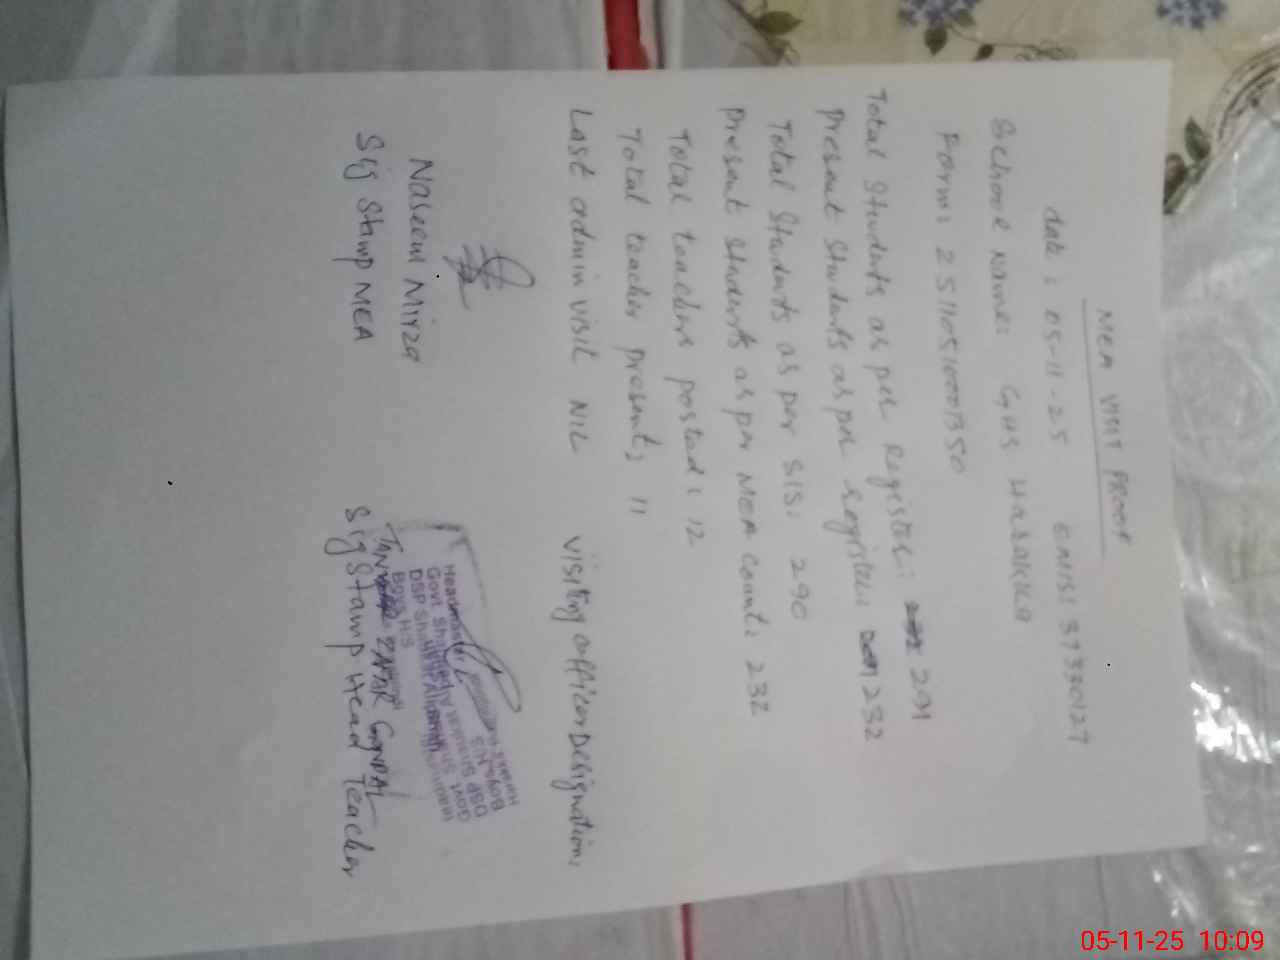 MEA VISIT PROOF
date: 05-11-25 EMIS: 37330127
School Name: GHS
Form: 25110510001350
Total Students as per Register: 291
Present Students as per Register: 232
Total Students as per SIS: 290
Present Students as per MEA Count: 232
Total teachers posted: 12
Total teacher present: 11
Last admin visit NIL visiting officer Designation:
Naseem Mirza
Sig Stamp MEA
Headmaster
Govt.
DSP
Boys HS
ZAFAR GONDAL
Sig Stamp Head Teacher
05-11-25 10:09